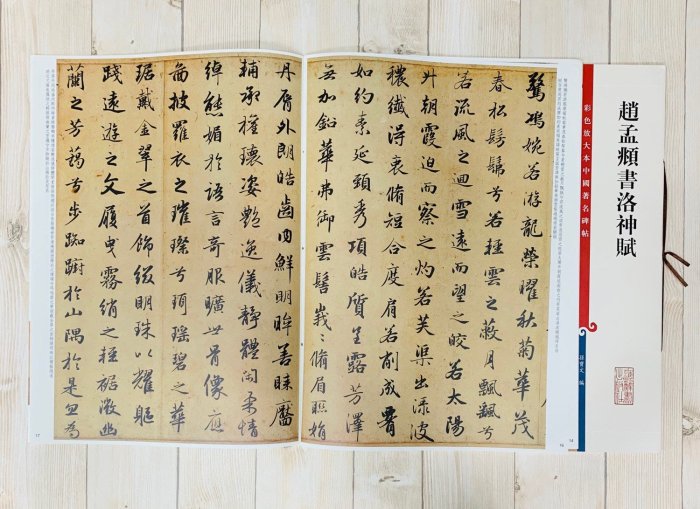 趙孟頫書洛神賦
彩色放大本中國著名碑帖
孫寶文 編
驚鴻婉若游龍榮曜秋菊華茂
春松髣髴兮若輕雲之蔽月飄颻兮
若流風之迴雪遠而望之皎若太陽
升朝霞迫而察之灼若芙渠出淥波
穠纖得衷脩短合度肩若削成腰
如約素延頸秀項皓質呈露芳澤
無加鉛華弗御雲髻峩〻脩眉聯娟
丹脣外朗皓齒內鮮明眸善睞靨
輔承權瓌姿艷逸儀靜體閑柔情
綽態媚於語言奇服曠世骨像應
圖披羅衣之璀璨兮珥瑤碧之華
琚戴金翠之首飾綴明珠以耀軀
踐遠遊之文履曳霧綃之輕裾微幽
蘭之芳藹兮步踟躕於山隅於是忽焉
14
16
17